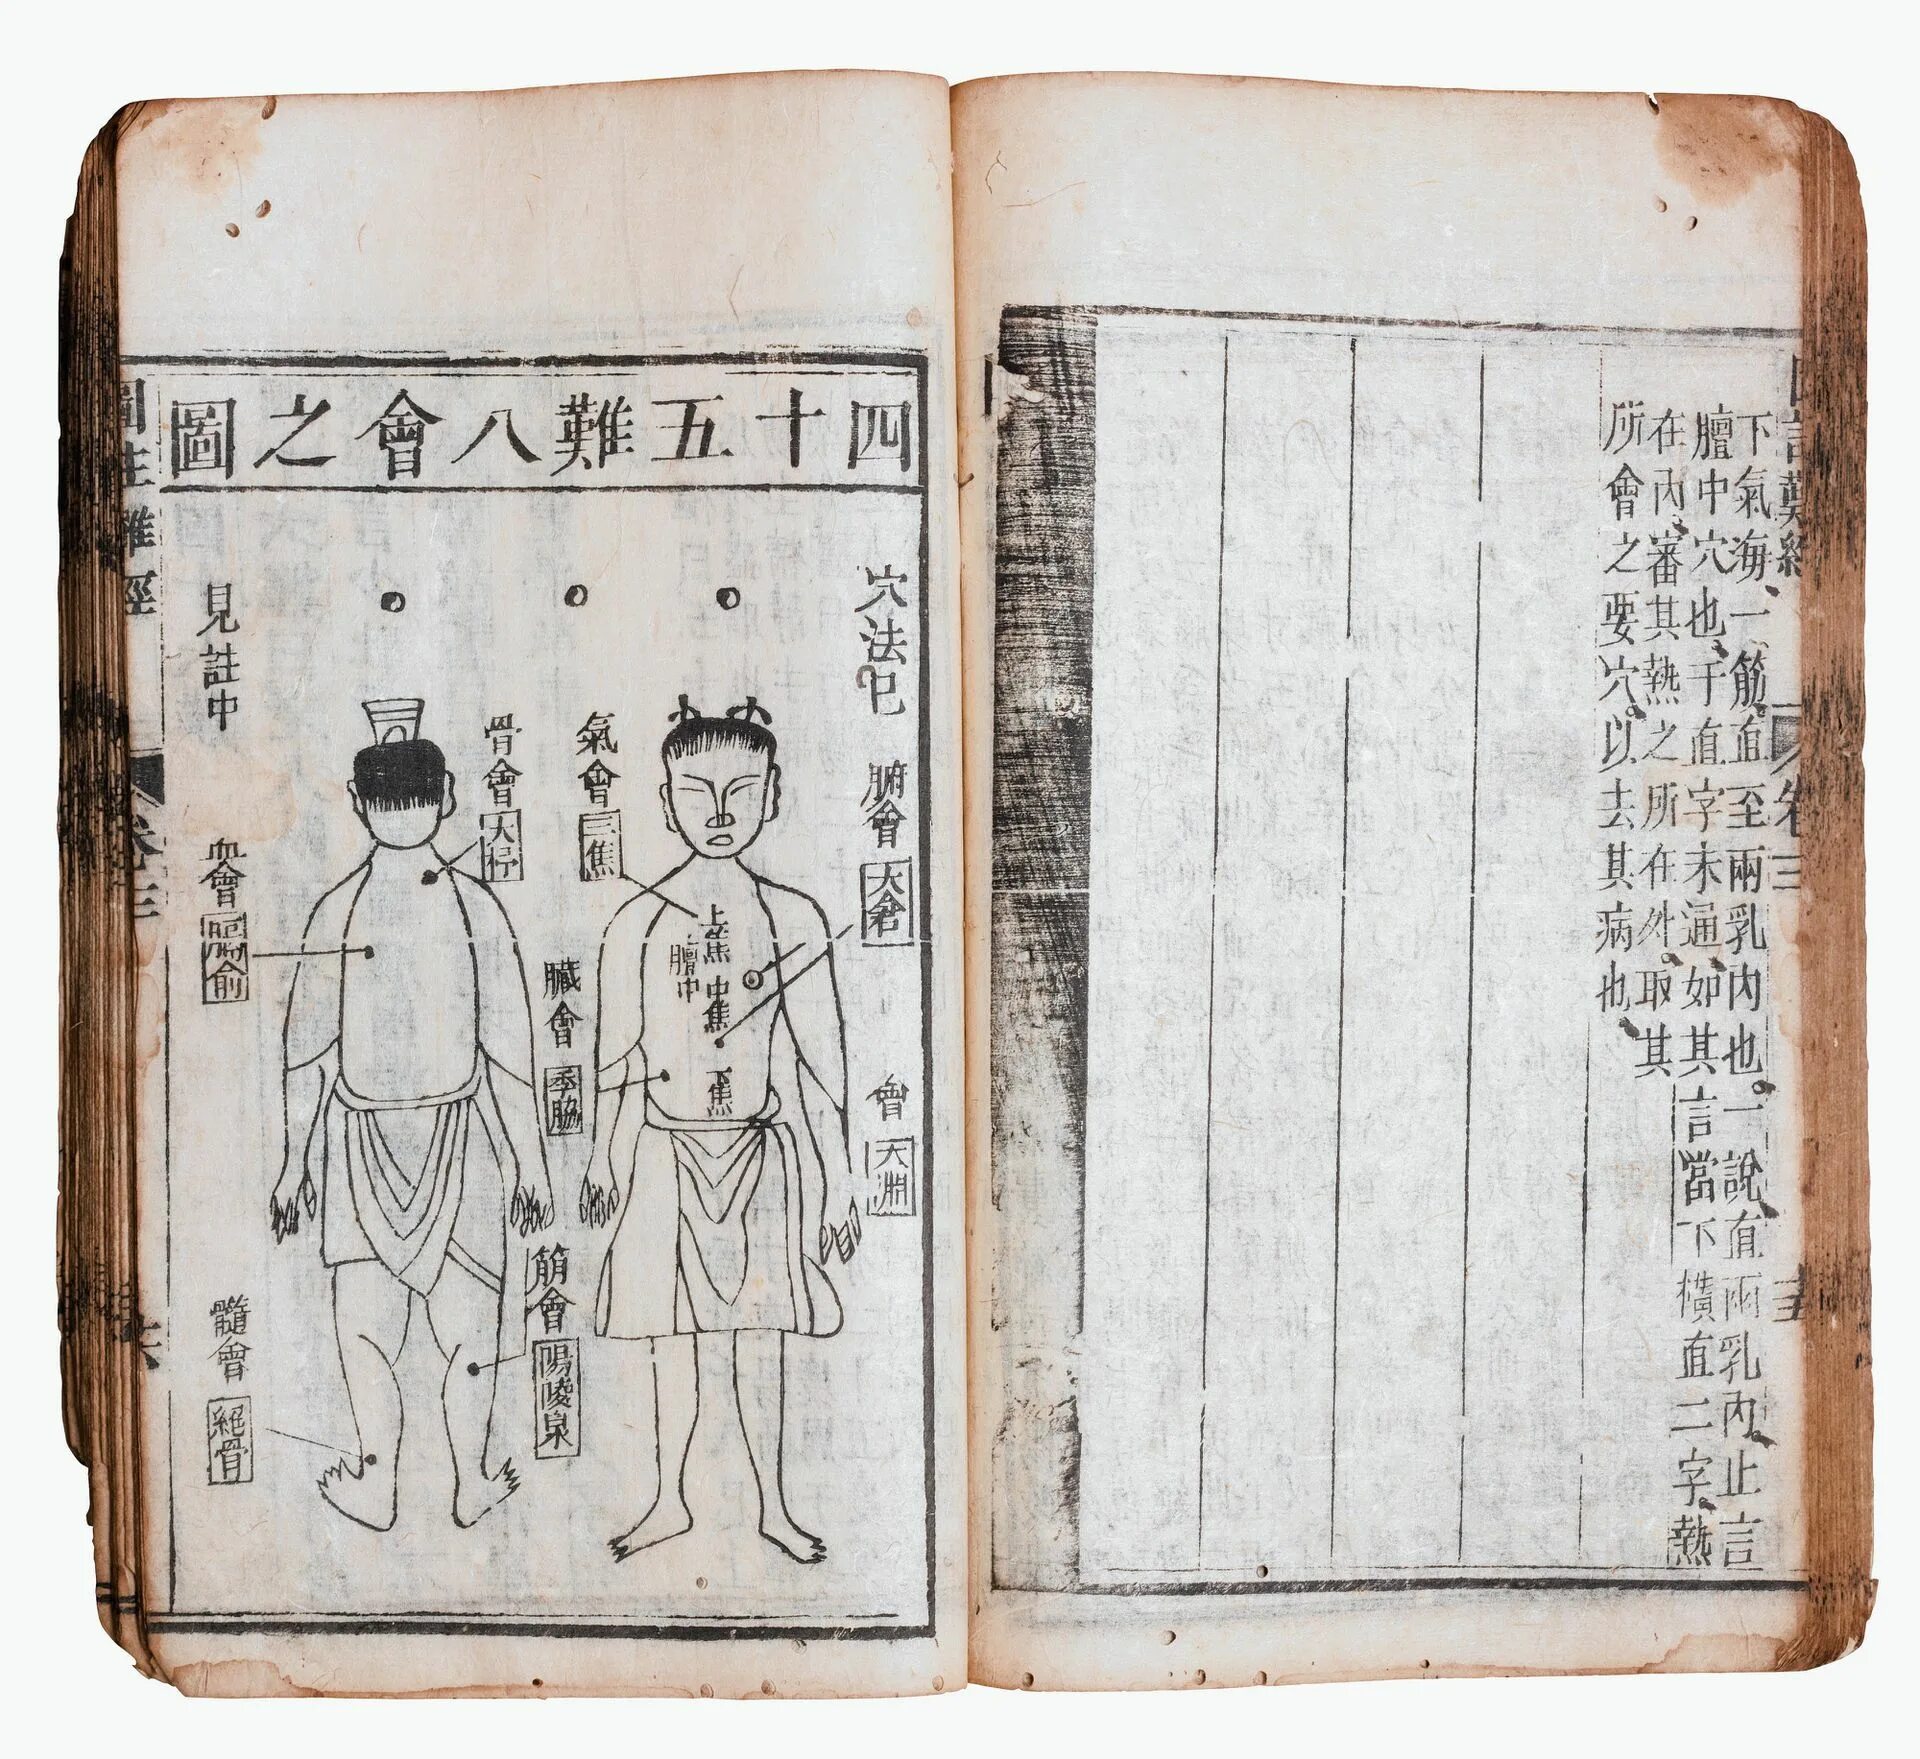 下氣海、一、筋直至兩乳內也。一說直兩乳內。止言
膻中穴也、千直字未通、如其言當下橫直二字。熱
在內、審其熱之所在外。取其
所會之要穴。以去其病也、
卷三
四十五難八會之圖
穴法已
見註中
腑會
大倉
會
氣會
三焦
上焦
膻中
中焦
下焦
骨會
大杼
臟會
季脇
筋會
陽陵泉
血會
髓會
絕骨
卷三